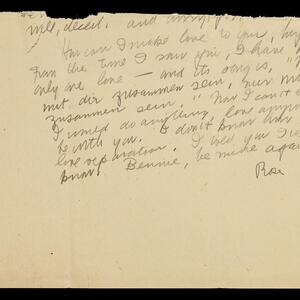 deceit, and
How can I make love to you,
From the time I saw you, I have
only one love — and its song is,
mit dir zusammen sein, nur
zusammen sein." Now I can't
I would do anything, love
be with you. I don't know
live separation. I told you I
know. Bennie, be mine again
Rose